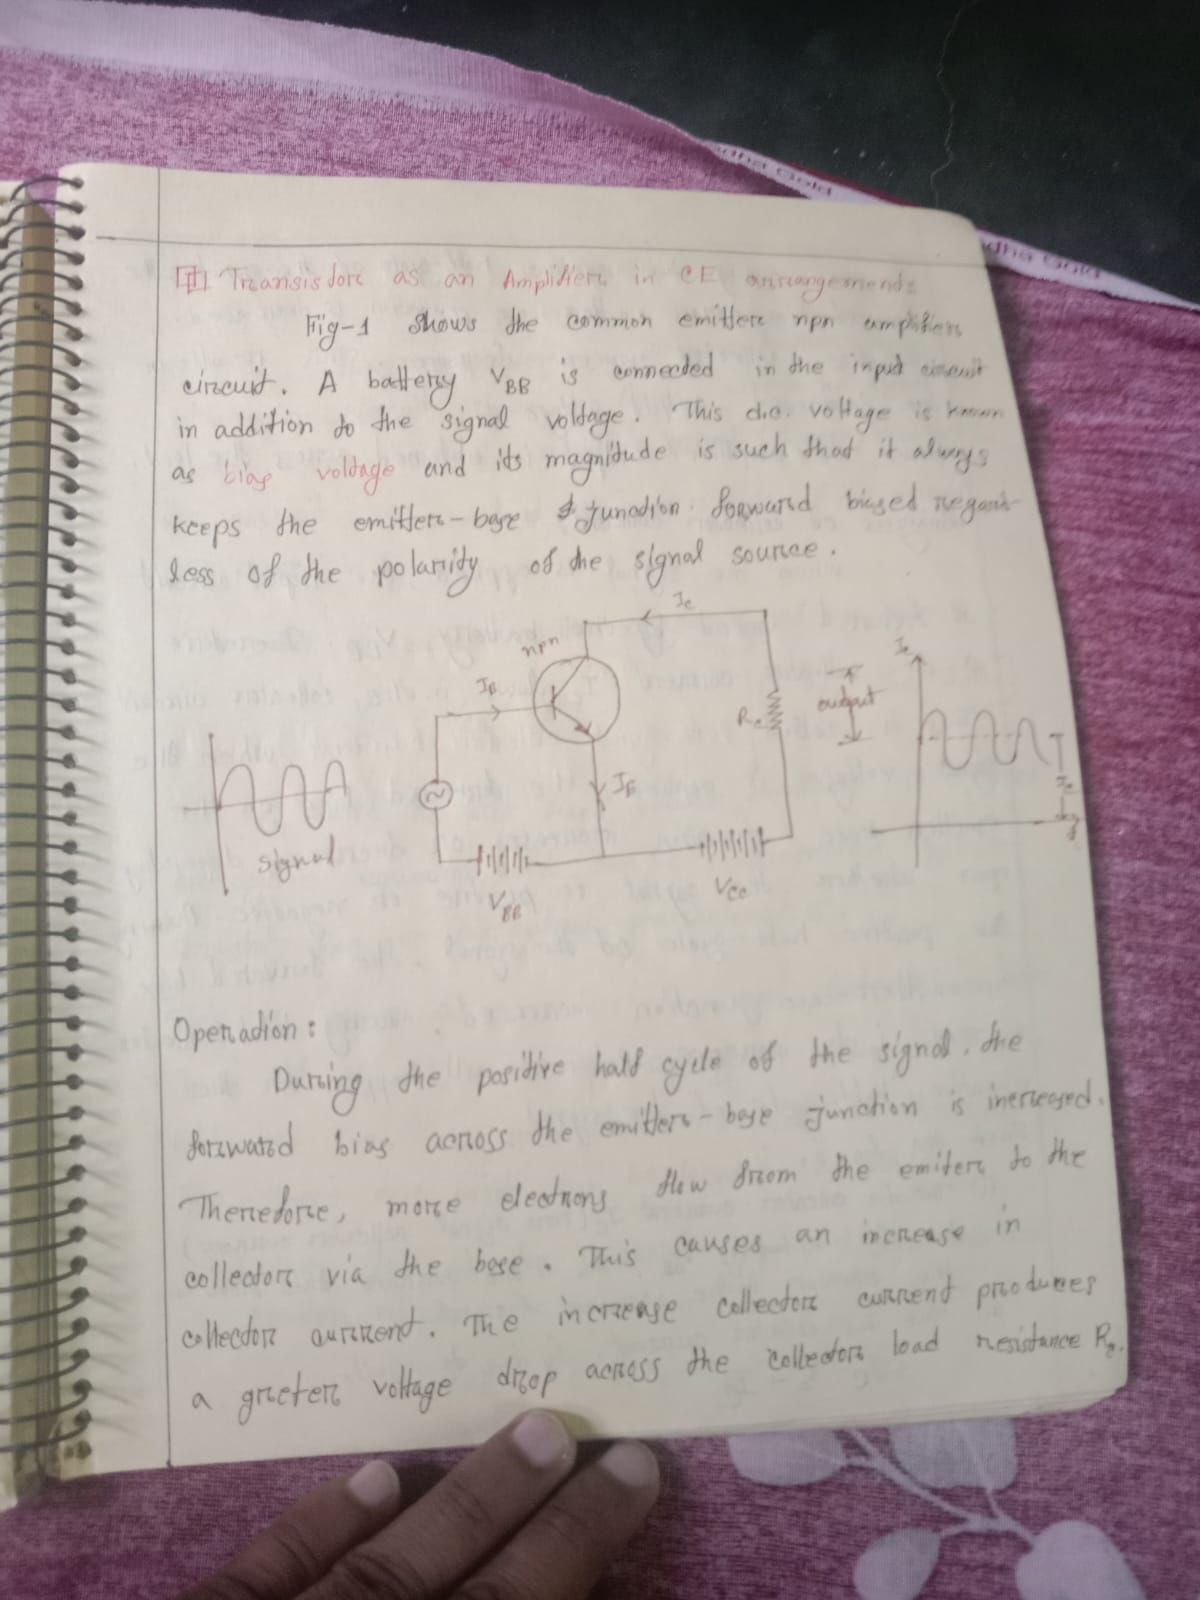 Transistor as an Amplifier in CE arrangement:
Fig-1 shows the common emitter npn amplifier
circuit. A battery VBB is connected in the input circuit
in addition to the signal voltage. This d.c. voltage is known
as bias voltage and its magnitude is such that it always
keeps the emitter-base junction forward biased regard
less of the polarity of the signal source.
Ic
npn
IB
Rc
output
Ic
IE
signal
VBB
Vcc
Ic
t
Operation:
During the positive half cycle of the signal, the
forward bias across the emitter-base junction is increased.
Therefore, more electrons flow from the emiter to the
collector via the base. This causes an increase in
collector current. The increase collector current produces
a greter voltage drop across the collector load resistance Rc.
dha Gold
dha Gold